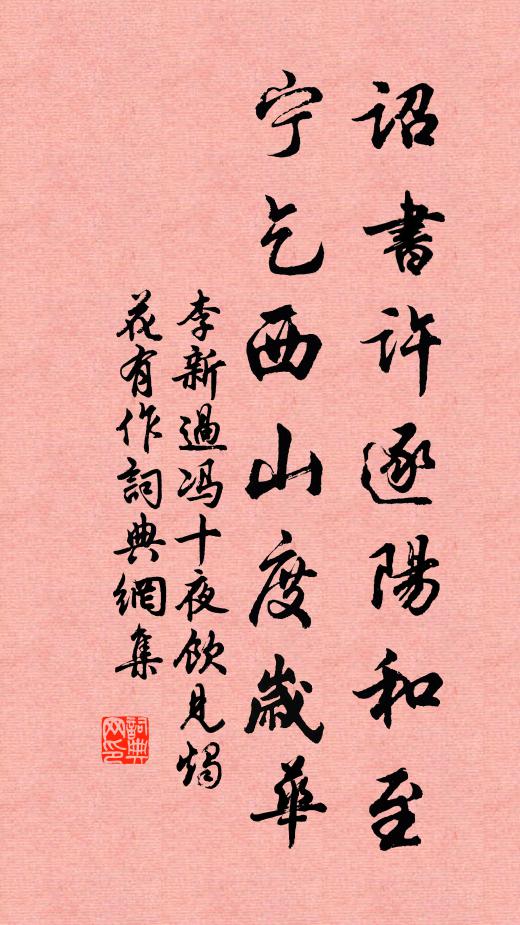 詔書許逐陽和至
宁乞西山度歲華
李新過冯十夜飲見燭
花有作詞典網集
詞典
网印